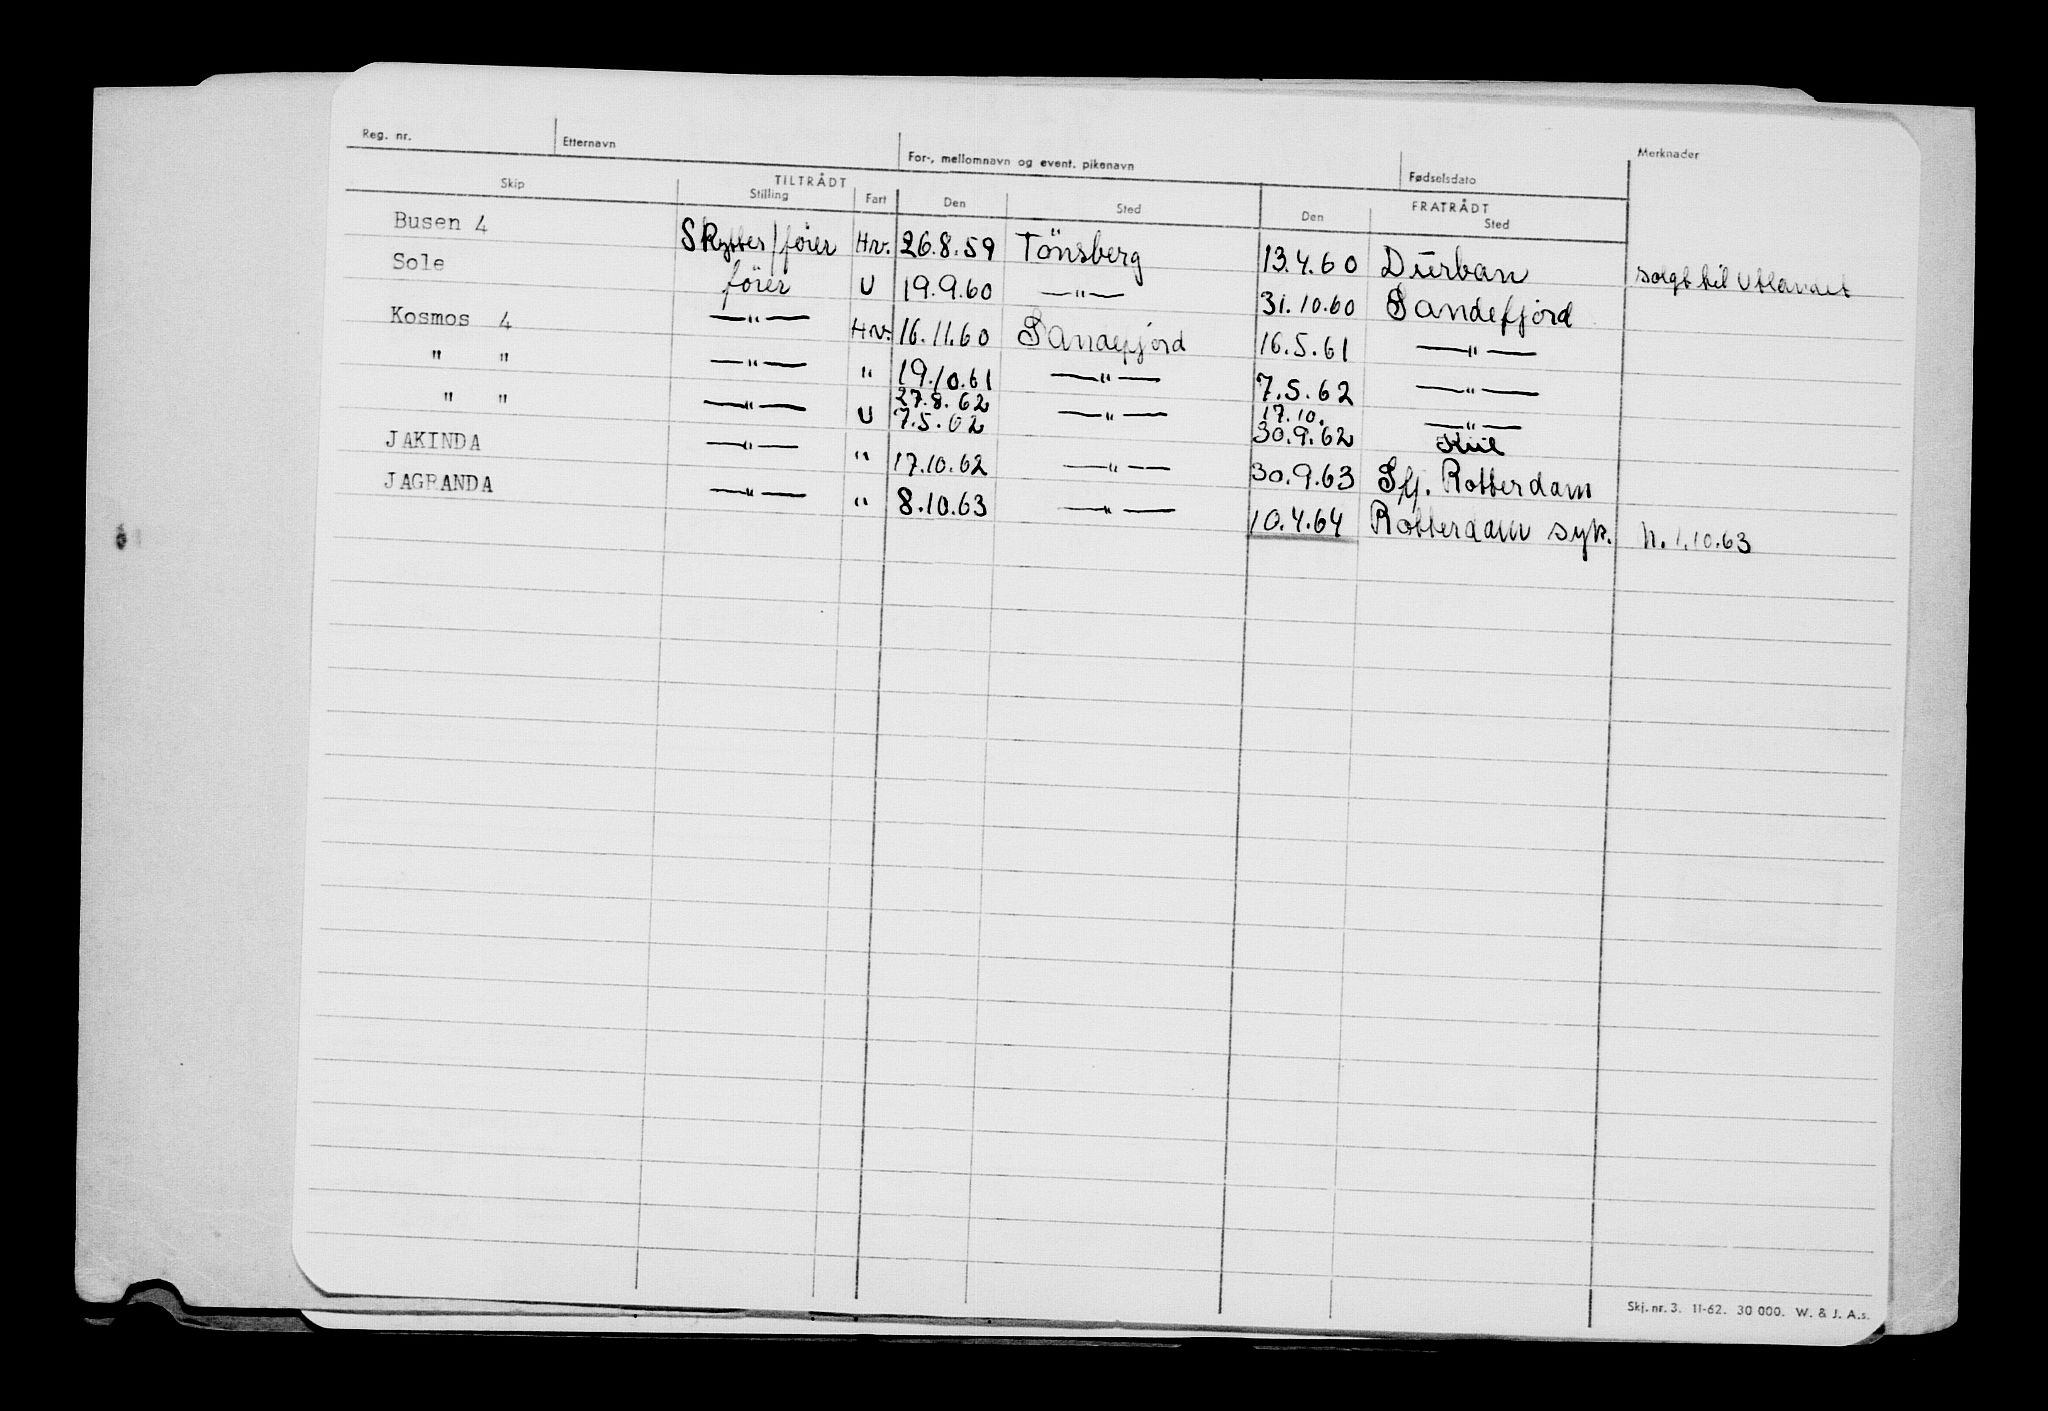 Reg. nr. Etternavn For-, mellomnavn og event. pikenavn Fødselsdato Merknader
TILTRÅDT FRATRÅDT
Skip Stilling Fart Den Sted Den Sted
Busen 4 Skytter/føier Hv. 26.8.59 Tönsberg 13.4.60 Durban solgt til Utlandet
Sole föier U 19.9.60 —"— 31.10.60 Sandefjord
Kosmos 4 —"— Hv. 16.11.60 Sandefjord 16.5.61 —"—
" " —"— " 19.10.61 —"— 7.5.62 —"—
27.8.62 17.10.
" " —"— U 7.5.62 —"— 30.9.62 —"— Kiel
JAKINDA —"— " 17.10.62 —"— 30.9.63 Sfj. Rotterdam
JAGRANDA —"— " 8.10.63 —"— 10.4.64 Rotterdam syk. h. 1.10.63
Skj. nr. 3. 11-62. 30 000. W. & J. A.s.